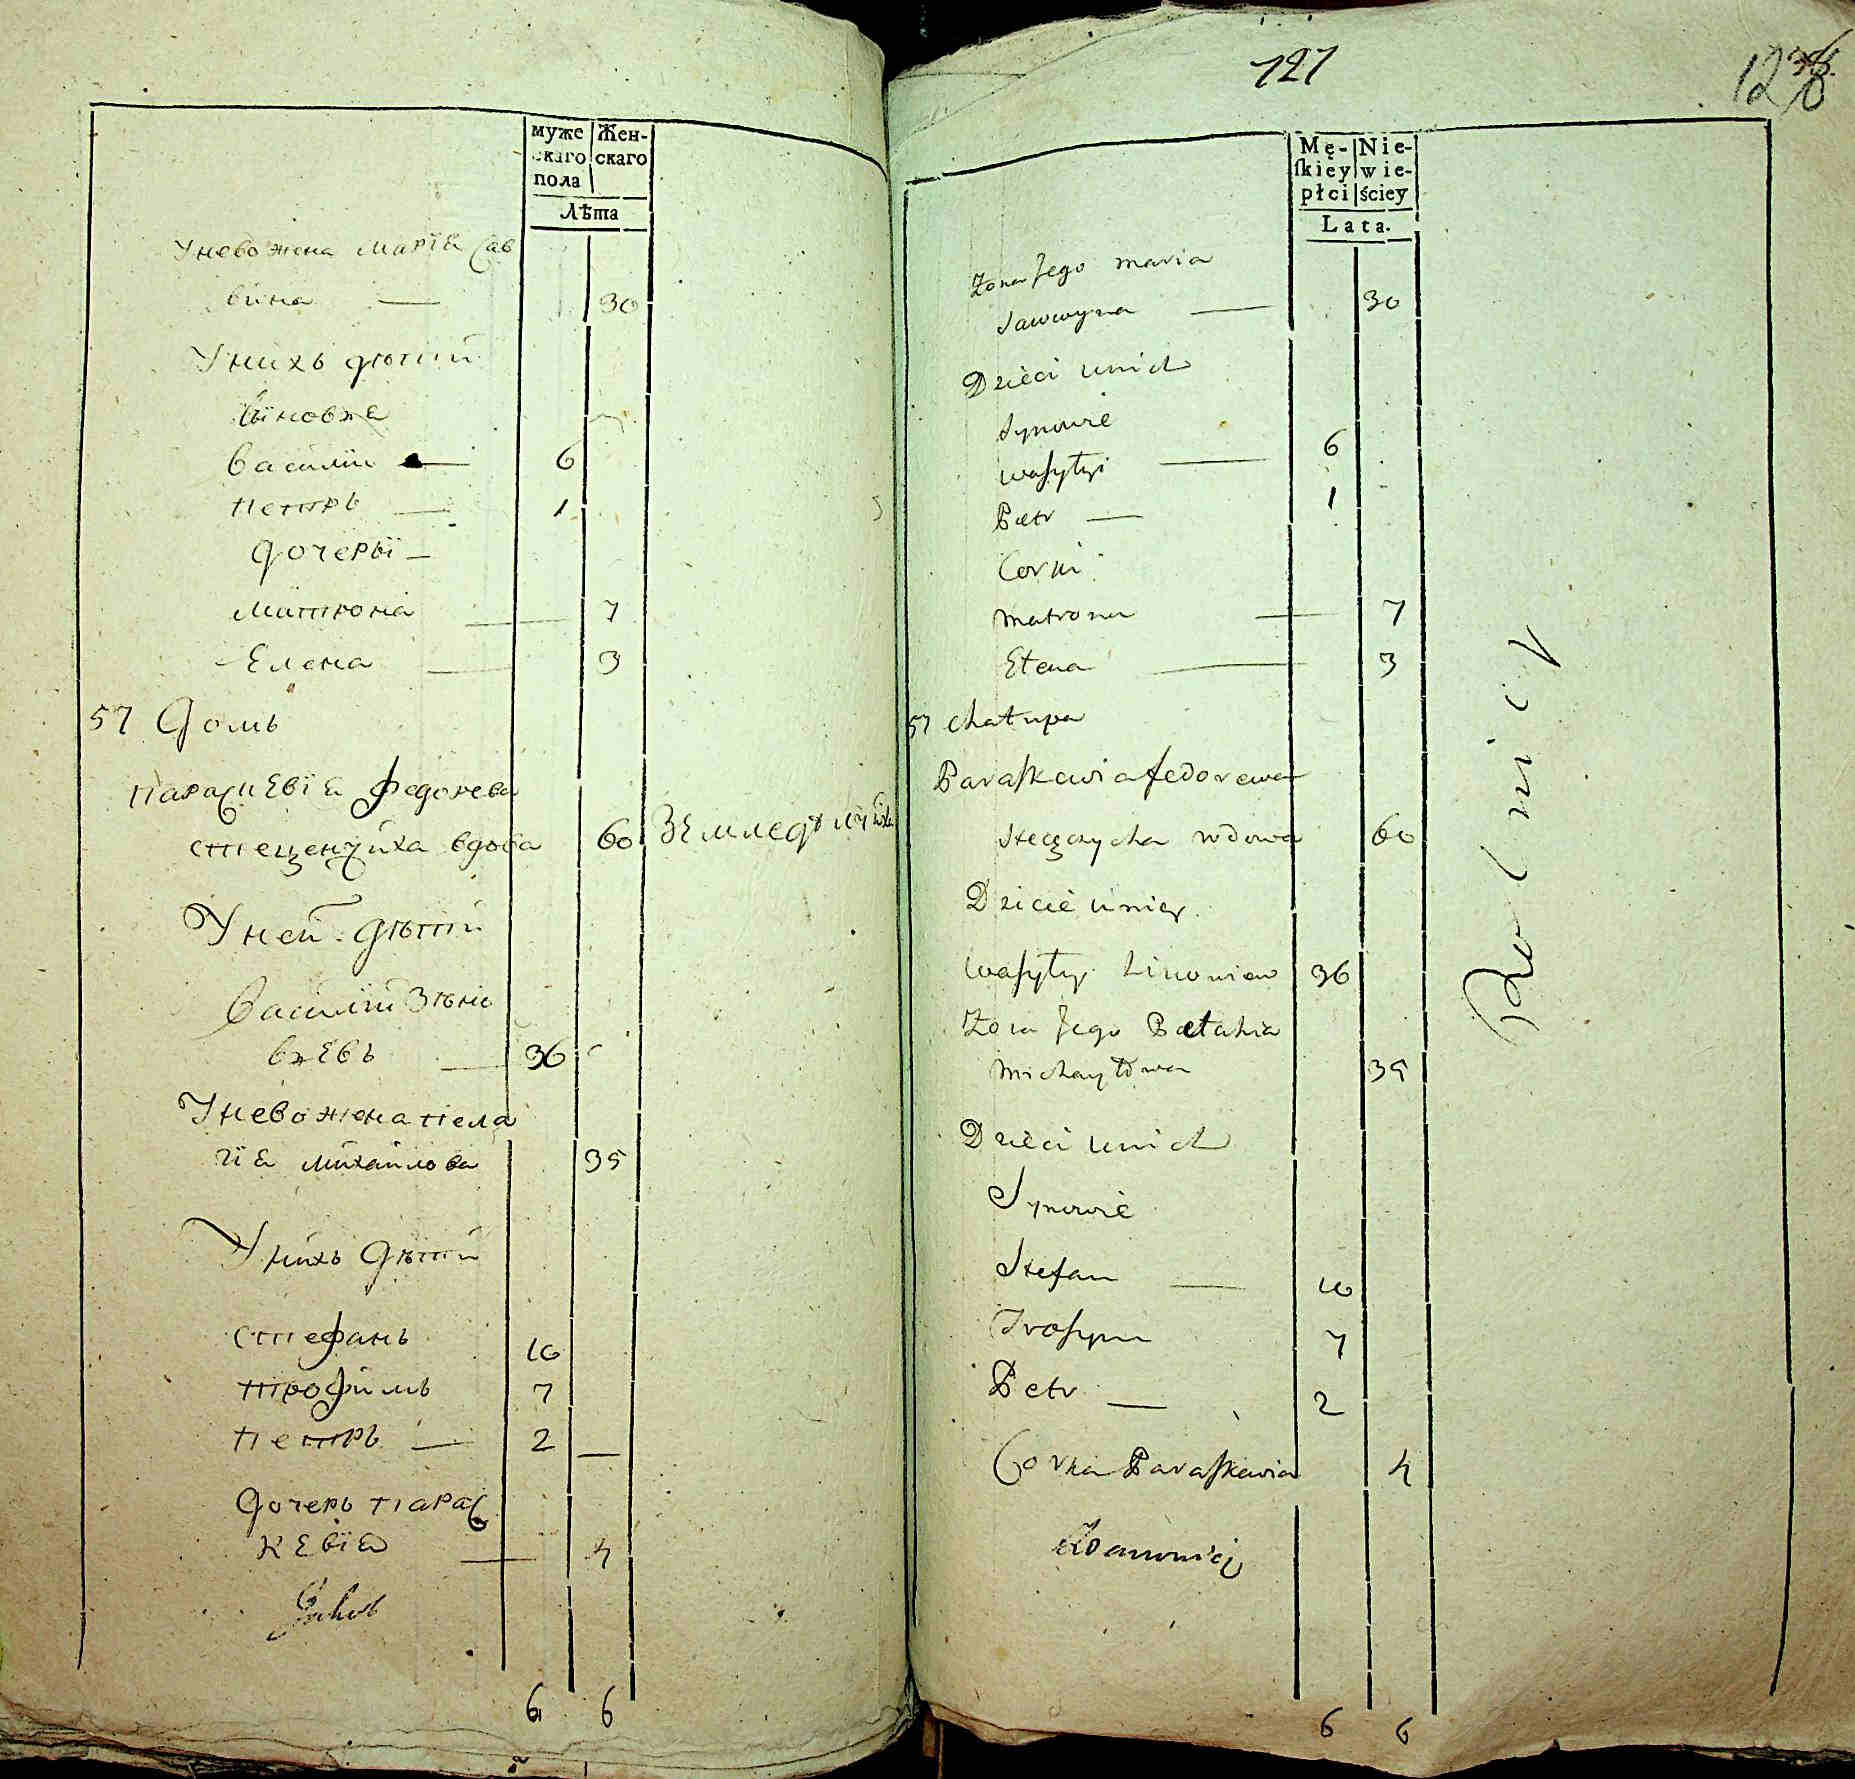 муже Жен-
скаго скаго
пола
Лѣта
Унево жена Марїя Сав
вина — 30
Унихъ дѣтий
Сїновѣя
Василїй — 6
Петръ — 1
Дочерьї —
Матрона — 7
Елена — 3
57 Домъ
Параскевїя Федорева
Стеценчиха вдова 60
Уней дѣтий
Василїй Зѣнє
вѣевъ — 36
Унево жена Пела
гїя Михайлова 35
Унихъ дѣтий
Стефанъ 10
Трофимъ 7
Петръ — 2 —
Дочеръ Парас
кевїя — 4
6 6
121
Mę- Nie-
ſkiey wie-
płci ściey
Lata.
Zona Jego Maria
Sawwyna — 30
Dzieci unich
Synowie
Wasyłyi — 6
Petr — 1
Corki
Matrona — 7
Ełena — 3
57 Chałupa
Paraskewia Fedorewa
Steczycha wdowa 60
Dzicie uniey
Wasyłyi Zinowiew 36
Zona Jego Pełahia
Michayłowa 35
Dzieci unich
Synowie
Stefan — 10
Trofym 7
Petr — 2
Corka Paraskewia 4
6 6
Rolnicy